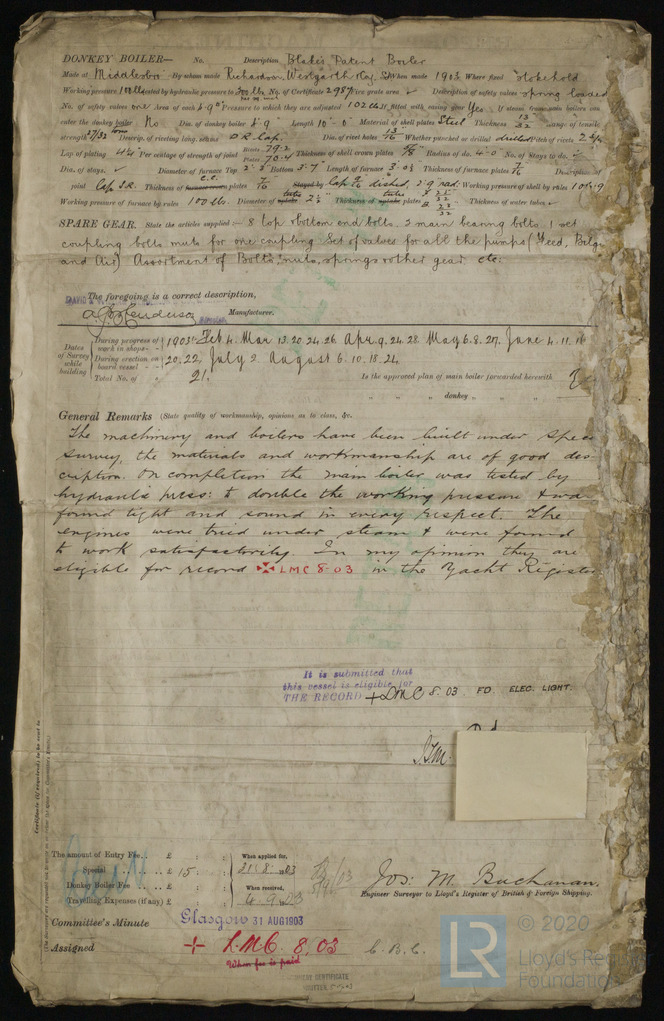 DONKEY BOILER— No. Description Blake's Patent Boiler
Made at Middlesbro By whom made Richardson, Westgarth & Coy. Ld When made 1903 Where fixed Stokehold
Working pressure 100 lbs tested by hydraulic pressure to 200 lbs No. of Certificate 2987 Fire grate area ✓ Description of safety valves spring loaded
No. of safety valves one Area of each 5.90" Pressure to which they are adjusted 102 lbs If fitted with easing gear Yes If steam from main boilers can
enter the donkey boiler No Dia. of donkey boiler 5'9" Length 10'0" Material of shell plates Steel Thickness 13/32 Range of tensile
strength 27/32 tons Descrip. of riveting long. seams D R Lap. Dia. of rivet holes 13/16 Whether punched or drilled drilled Pitch of rivets
Lap of plating Per centage of strength of joint Rivets 79.2 Plates 70.4 Thickness of shell crown plates Radius of do. 4'0" No. of Stays to do. ✓
Dia. of stays. ✓ Diameter of furnace Top Bottom Length of furnace Thickness of furnace plates Description of
joint Lap S.R. Thickness of furnace crown plates c.c. Stayed by dished, 2'9 rad. Working pressure of shell by rules
Working pressure of furnace by rules 100 lb. Diameter of uptake tubes Thickness of uptake plates tubes Thickness of water tubes ✓
SPARE GEAR. State the articles supplied:— 8 top & bottom end bolts, 2 main bearing bolts. 1 set
coupling bolts nuts for one coupling. Set of valves for all the pumps (Feed, Bilge
and Air) Assortment of Bolts & nuts, springs & other gear etc.
The foregoing is a correct description,
Manufacturer.
Dates of Survey while building
During progress of work in shops— 1903:- Feb 4. Mar 13. 20. 24. 26. Apr. 9. 24. 28. May 6. 8. 27. June 4. 11. 16
During erection on board vessel— 20. 22. July 2. August 6. 10. 18. 24.
Total No. of 21.
Is the approved plan of main boiler forwarded herewith
" " " donkey " " "
General Remarks (State quality of workmanship, opinions as to class, &c.
The machinery and boilers have been built under Spec
survey, the materials and workmanship are of good des-
cription. On completion the main boiler was tested by
hydraulic press: to double the working pressure & wa
found tight and sound in every respect. The
engines were tried under steam & were found
to work satisfactorily. In my opinion they are
eligible for record LMC 8-03 in the Yacht Register.
It is submitted that
this vessel is eligible for
THE RECORD + LMC 8.03 FD ELEC. LIGHT.
Certificate (if required) to be sent to
The amount of Entry Fee.. £ : : When applied for,
Special .. £ 15 : : 21.8.03
Donkey Boiler Fee .. £ : : When received,
Travelling Expenses (if any) £ : : 4.9.03
Jos: M. Buchanan.
Engineer Surveyor to Lloyd's Register of British & Foreign Shipping.
Committee's Minute Glasgow 31 AUG 1903
Assigned + L.M.C. 8.03
When fee is paid
C.B.C.
© 2020
LR
Lloyd's Register
Foundation